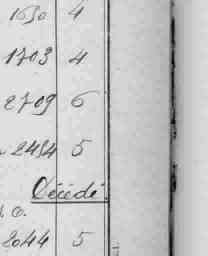 1630 4
1703 4
2709 6
2434 5
Décédé
2044 5